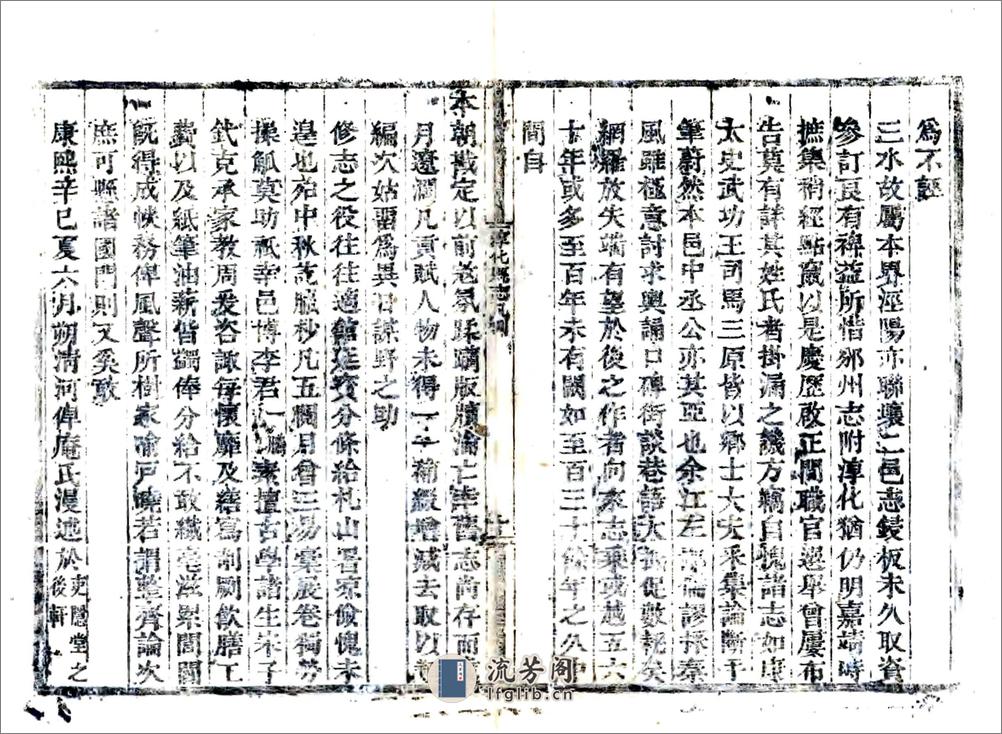 爲不誣
三水故屬本界涇陽亦聯壤二邑志鋟板未久取資
參訂良有裨益所惜邠州志附淳化猶仍明嘉靖時
摭集稍經點竄以是慶歷啟正間職官選舉曾屢布
告莫有詳其姓氏者掛漏之譏方竊自愧諸志如康
太史武功王司馬三原皆以鄉士大夫釆集論斷于
筆蔚然本邑中丞公亦其亞也余江左謬採秦
風雖極意討求輿誦口碑街談巷語大數耗矣
網羅放失端有望於後之作者向來志乘或越五六
十年或多至百年未有闕如至百三十餘年之久中
間自
淳化縣志
本朝戡定以前老氛蹂躪版牘淪亡幸舊志尚存而
月遼濶凡貢賦人物未得一二補綴增減去取以
編次姑畱爲異日謀野之助
修志之役往往適館延賓分條給札山署凉儉愧未
遑也始中秋訖臘杪凡五閱月會三易稾展卷獨勞
操觚莫助祇幸邑博李君一鵬素擅古學諸生宋子
鈇克承家教周爰咨諏每懷靡及繕寫剞劂飲膳工
費以及紙筆油薪偕蠲俸分給不敢纖毫滋累閭閻
旣得成帙務俾風聲所樹家喻戸曉若謂整齊論次
庶可縣諸國門則又奚敢
康熙辛巳夏六月朔清河俾庵氏漫述於吏隱堂之
後軒
流芳阁
lfglib.cn